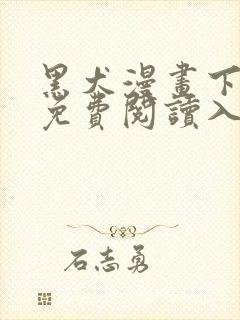 黑犬漫畫下
免費閱讀入
石志勇